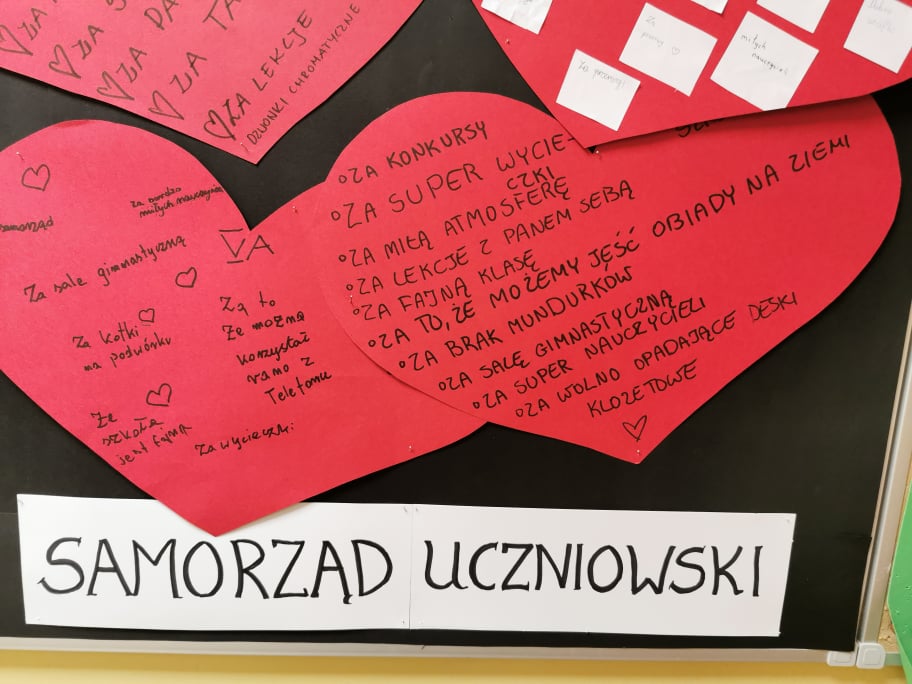 ♡ZA
♡ZA DA
♡ZA TA
♡ZA LEKCJE
DZWONKI CHROMATYCZNE
Za
panią ♡
miłych
nauczycieli
samorząd
Za bardzo
miłych nauczycieli
VA
Za sale gimnastyczną
Za kotki
na podwórku
Zą to
że można
korzystać
rano z
Telefonu
Że
szkoła
jest fajna
Za wycieczki
°ZA KONKURSY
°ZA SUPER WYCIE-
CZKI
°ZA MIŁĄ ATMOSFERĘ
°ZA LEKCJE Z PANEM SEBĄ
°ZA FAJNĄ KLASĘ
°ZA TO, ŻE MOŻEMY JEŚĆ OBIADY NA ZIEMI
°ZA BRAK MUNDURKÓW
°ZA SALĘ GIMNASTYCZNĄ
°ZA SUPER NAUCZYCIELI
°ZA WOLNO OPADAJĄCE DESKI
KLOZETOWE
SAMORZĄD UCZNIOWSKI